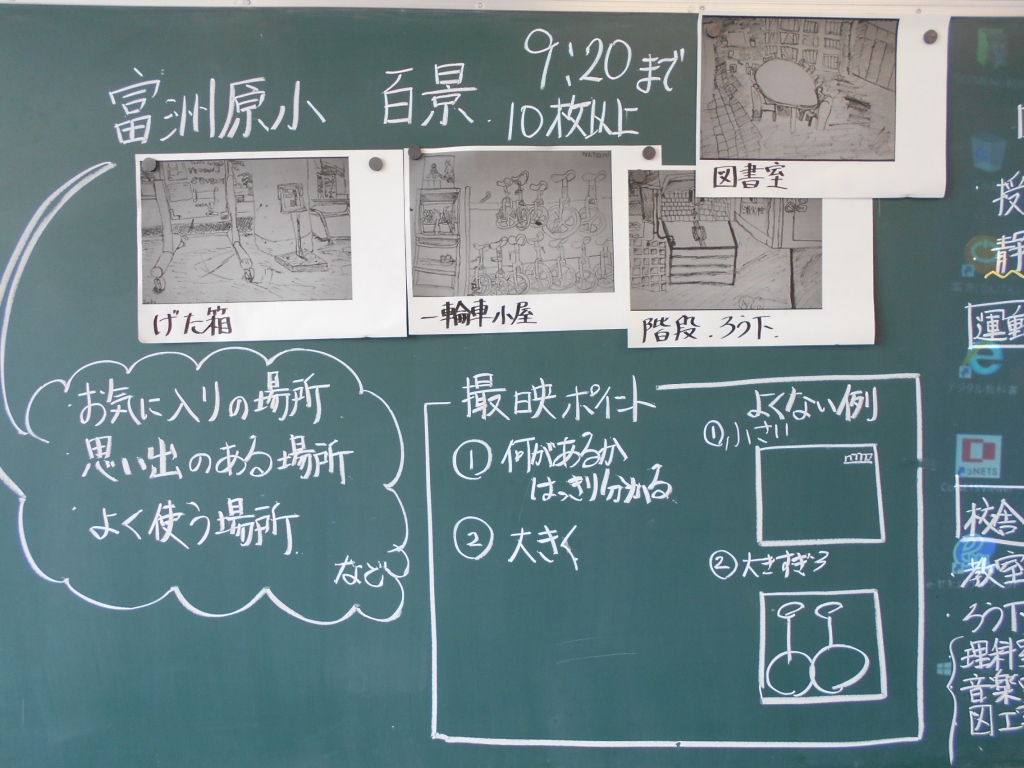 富洲原小 百景
9:20まで
10枚以上
図書室
げた箱
一輪車小屋
階段.ろう下.
お気に入りの場所
思い出のある場所
よく使う場所
など
撮映ポイント
①何があるか
はっきり分かる
②大きく
よくない例
①小さい
②大きすぎる
授
静
運動
デジタル教科書
校舎
教室
ろう下
理科室
音楽
図工